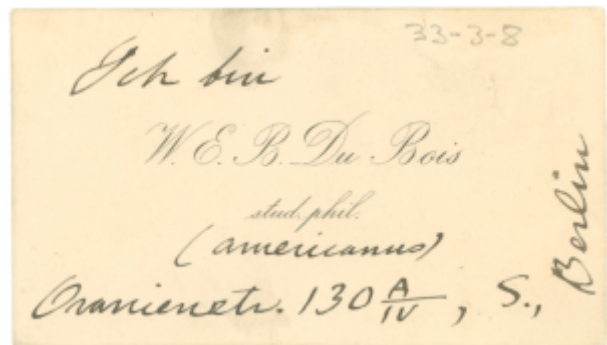 33-3-8
Ich bin
W. E. B. Du Bois
stud. phil.
(americanus)
Oranienstr. 130 A/IV, S., Berlin